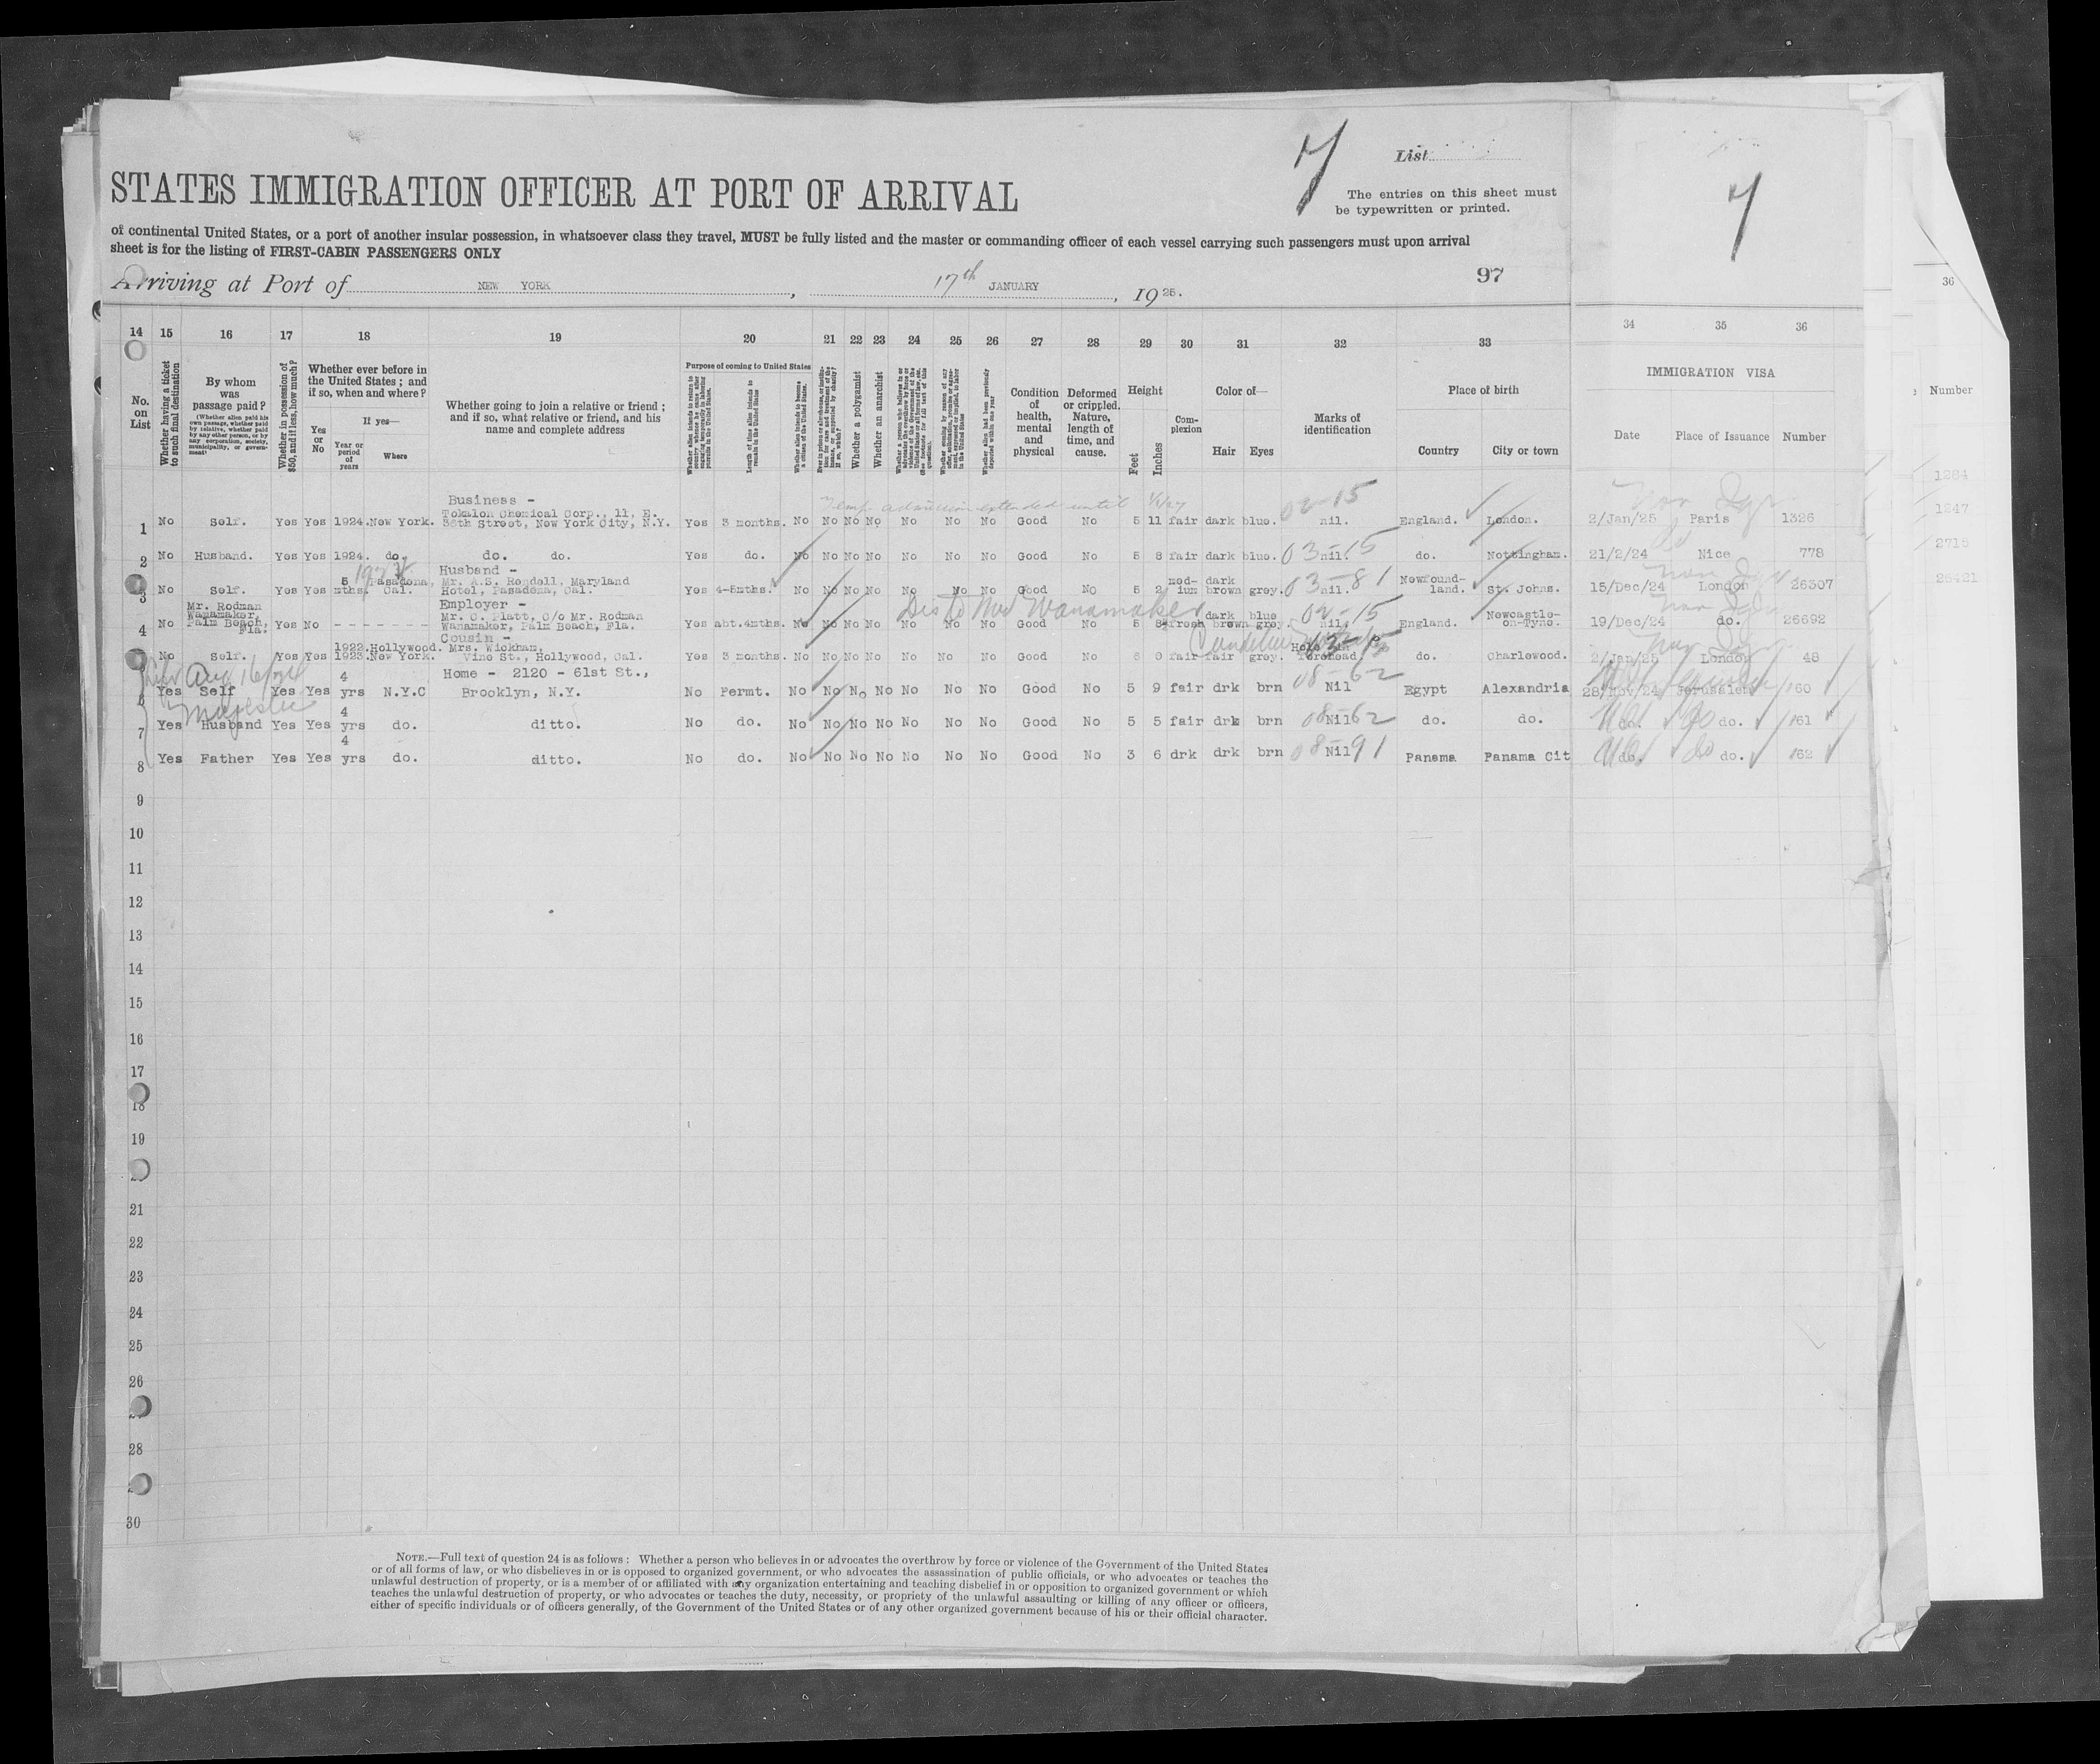 7
List
STATES IMMIGRATION OFFICER AT PORT OF ARRIVAL
The entries on this sheet must
be typewritten or printed.
7
of continental United States, or a port of another insular possession, in whatsoever class they travel, MUST be fully listed and the master or commanding officer of each vessel carrying such passengers must upon arrival
sheet is for the listing of FIRST-CABIN PASSENGERS ONLY
Arriving at Port of NEW YORK, 17th JANUARY, 1925.
97
36
14 15 16 17 18 19 20 21 22 23 24 25 26 27 28 29 30 31 32 33 34 35 36
No. on List
Whether having a ticket to such final destination
By whom was passage paid?
(Whether alien paid his own passage, whether paid by relative, whether paid by any other person, or by any corporation, society, municipality, or government)
Whether in possession of $50, and if less, how much?
Whether ever before in the United States; and if so, when and where?
Yes or No
If yes—
Year or period of years
Where
Whether going to join a relative or friend; and if so, what relative or friend, and his name and complete address
Purpose of coming to United States
Length of time alien intends to remain in the United States
Whether a polygamist
Whether an anarchist
Condition of health, mental and physical
Deformed or crippled. Nature, length of time, and cause.
Height
Feet Inches
Complexion
Color of—
Hair Eyes
Marks of identification
Place of birth
Country City or town
IMMIGRATION VISA
Date Place of Issuance Number
Number
1264
1247
2715
25421
Temp admission extended until
Business -
1 No Self. Yes Yes 1924. New York. Tokalon Chemical Corp., 11, E. 36th Street, New York City, N.Y. Yes 3 months. No No No No No No No Good No 5 11 fair dark blue. 02-15 nil. England. London. 2/Jan/25 Paris 1326
2 No Husband. Yes Yes 1924. do. do. do. Yes do. No No No No No No No Good No 5 8 fair dark blue. 03-15 nil. do. Nottingham. 21/2/24 Nice 778
Husband -
3 No Self. Yes Yes 5 mths. Pasadena, Cal. Mr. A.S. Rendell, Maryland Hotel, Pasadena, Cal. Yes 4-5mths. No No No No No No No Good No 5 2 med-ium dark brown grey. 03-81 nil. Newfound-land. St. Johns. 15/Dec/24 London 26307
Employer -
4 No Mr. Rodman Wanamaker, Palm Beach, Fla. Yes No - - - - - - - Mr. C. Platt, C/o Mr. Rodman Wanamaker, Palm Beach, Fla. Yes abt.4mths. No No No No No No No Good No 5 8½ fresh dark brown blue grey. 02-15 nil. England. Newcastle-on-Tyne. 19/Dec/24 do. 26692
Wanamaker
Cousin -
5 No Self. Yes Yes 1922. Hollywood. 1923. New York. Mrs. Wickham, Vine St., Hollywood, Cal. Yes 3 months. No No No No No No No Good No fair fair grey. forehead do. Charlewood. 2/Jan/25 London 48
Aug 16/24
Majestic
6 Yes Self Yes Yes 4 yrs N.Y.C Home - 2120 - 61st St., Brooklyn, N.Y. No Permt. No No No No No No No Good No 5 9 fair drk brn 08-62 Nil Egypt Alexandria 28/Nov/24 Jerusalem 160
7 Yes Husband Yes Yes 4 yrs do. ditto. No do. No No No No No No No Good No 5 5 fair drk brn 08-62 Nil do. do. do. do. 161
8 Yes Father Yes Yes 4 yrs do. ditto. No do. No No No No No No No Good No 3 6 drk drk brn 08-91 Nil Panama Panama Cit do. do. 162
9
10
11
12
13
14
15
16
17
18
19
21
22
23
24
25
26
28
30
NOTE.—Full text of question 24 is as follows: Whether a person who believes in or advocates the overthrow by force or violence of the Government of the United States
or of all forms of law, or who disbelieves in or is opposed to organized government, or who advocates the assassination of public officials, or who advocates or teaches the
unlawful destruction of property, or is a member of or affiliated with any organization entertaining and teaching disbelief in or opposition to organized government or which
teaches the unlawful destruction of property, or who advocates or teaches the duty, necessity, or propriety of the unlawful assaulting or killing of any officer or officers,
either of specific individuals or of officers generally, of the Government of the United States or of any other organized government because of his or their official character.